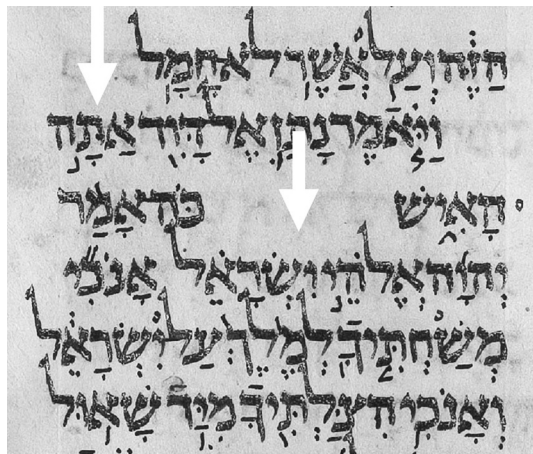 הַזֶּה וְעַל אֲשֶׁר לֹא חָמָל
וַיֹּאמֶר נָתָן אֶל דָּוִד אַתָּה
הָאִישׁ כֹּה אָמַר
יְהוָה אֱלֹהֵי יִשְׂרָאֵל אָנֹכִי
מְשַׁחְתִּיךָ לְמֶלֶךְ עַל יִשְׂרָאֵל
וְאָנֹכִי הִצַּלְתִּיךָ מִיַּד שָׁאוּל